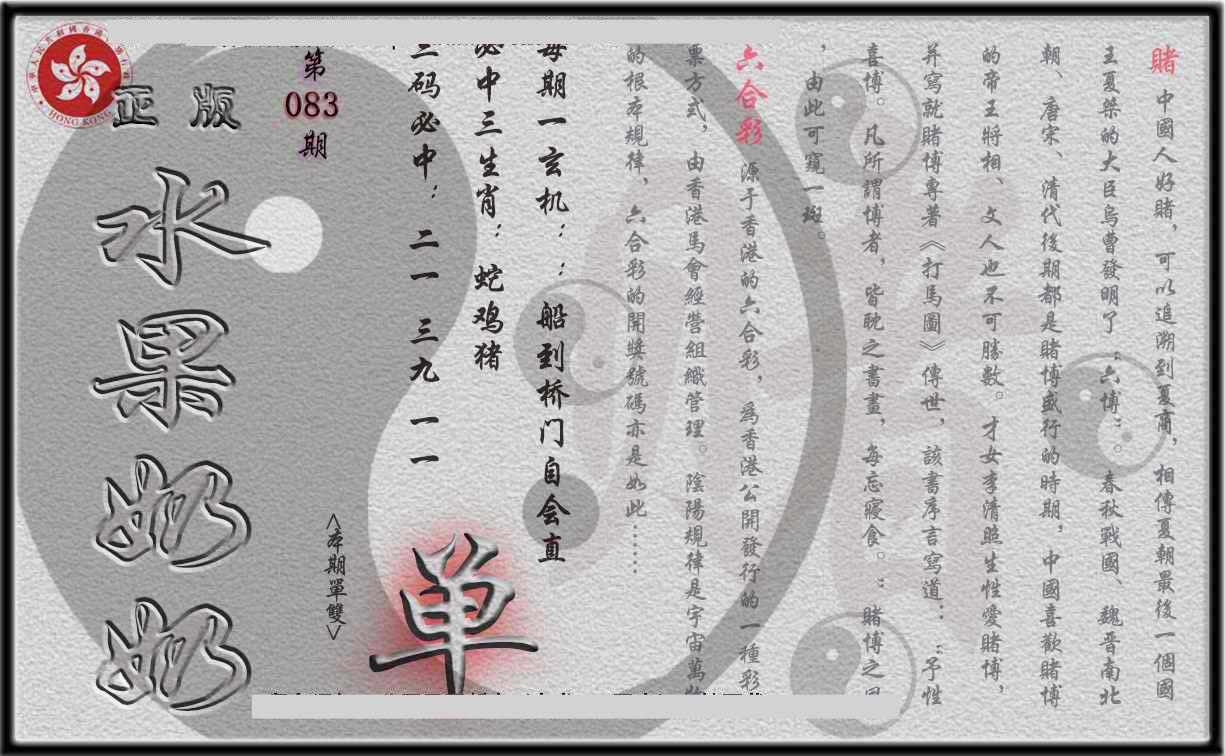 賭 中國人好賭，可以追溯到夏商，相傳夏朝最後一個國
王夏桀的大臣烏曹發明了“六博”。春秋戰國、魏晋南北
朝、唐宋、清代後期都是賭博盛行的時期，中國喜歡賭博
的帝王將相、文人也不可勝數。才女李清照生性愛賭博，
并寫就賭博專著《打馬圖》傳世，該書序言寫道：“予性
喜博。凡所謂博者，皆耽之晝，每忘寢食。”賭博之
，由此可窺一斑。
六合彩 源于香港的六合彩，為香港公開發行的一種彩
票方式，由香港馬會經營組織管理。陰陽規律是宇宙萬
的根本規律，六合彩的開獎號碼亦是如此……
每期一玄机：：船到桥门自会直
必中三生肖：蛇鸡猪
三码必中：二一 三九 一一
第
083
期
<本期單雙>
单
正版
水果奶奶
HONG KONG